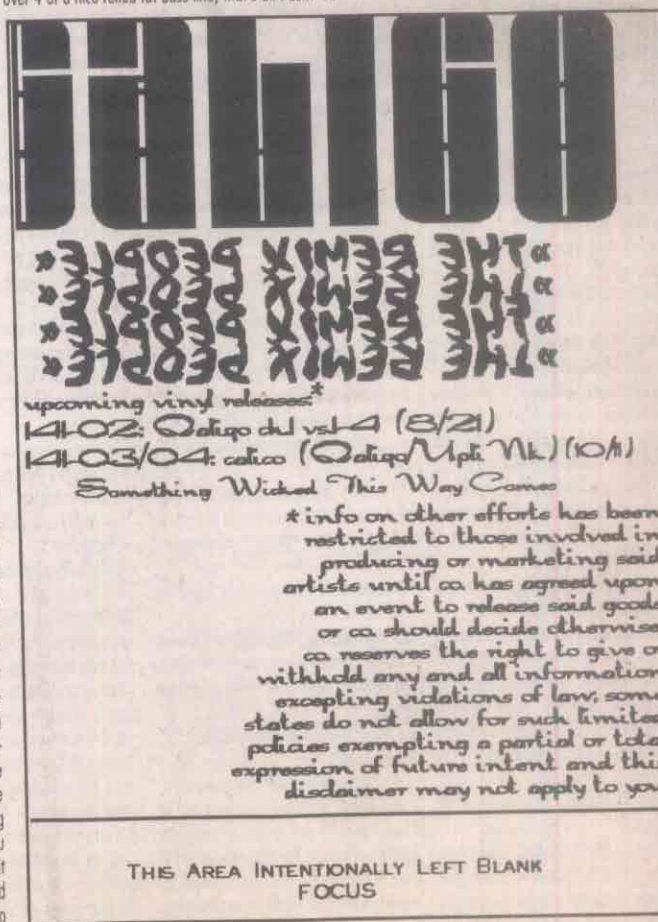 over 4 or 8
CALICO
« THE REMIX PEOPLE »
« THE REMIX PEOPLE »
« THE REMIX PEOPLE »
« THE REMIX PEOPLE »
upcoming vinyl releases:*
141-02: (8/21)
141-03/04: calico (10/1)
Something Wicked This Way Comes
* info on other efforts has been
restricted to those involved in
producing or marketing said
artists until co. has agreed upon
an event to release said goods
or co. should decide otherwise
co. reserves the right to give or
withhold any and all information
excepting violations of law; some
states do not allow for such limited
policies exempting a partial or total
expression of future intent and this
disclaimer may not apply to you
THIS AREA INTENTIONALLY LEFT BLANK
FOCUS